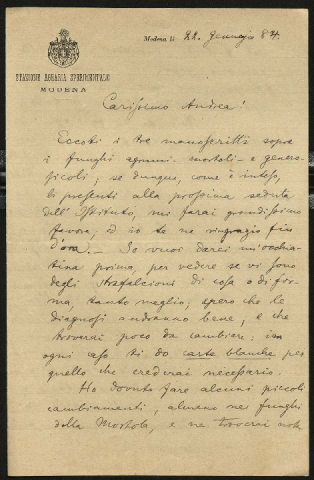 Modena li 22. Gennajo 84.
STAZIONE AGRARIA SPERIMENTALE
MODENA
Carissimo Andrea!
Eccoti i tre manoscritti sopra
i funghi agrumi mortoli- e
; se dunque, come è inteso,
li presenti alla prossima seduta
dell'Istituto, mi farai grandissimo
favore, ed io te ne ringrazio fin
d'ora. — Se vuoi darci un'occhia-
tina prima, per vedere se vi sono
degli strafalcioni di cosa o di for-
ma, tanto meglio; spero che le
diagnosi andranno bene, e che
troverai poco da cambiare; in
ogni caso ti do carte blanche per
quello che crederai necessario.
Ho dovuto fare alcuni piccoli
cambiamenti, almeno nei funghi
della Mortola, e ne troverai